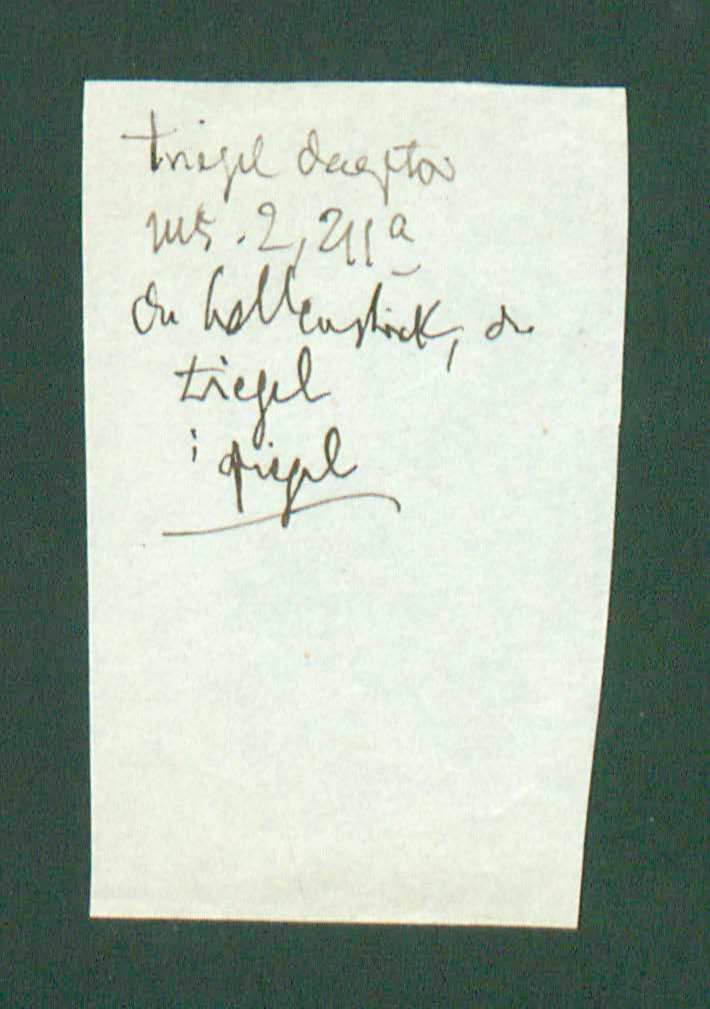 triegel deceptor
ms. 2, 211a
du hellenstrick, du
triegel
: priegel